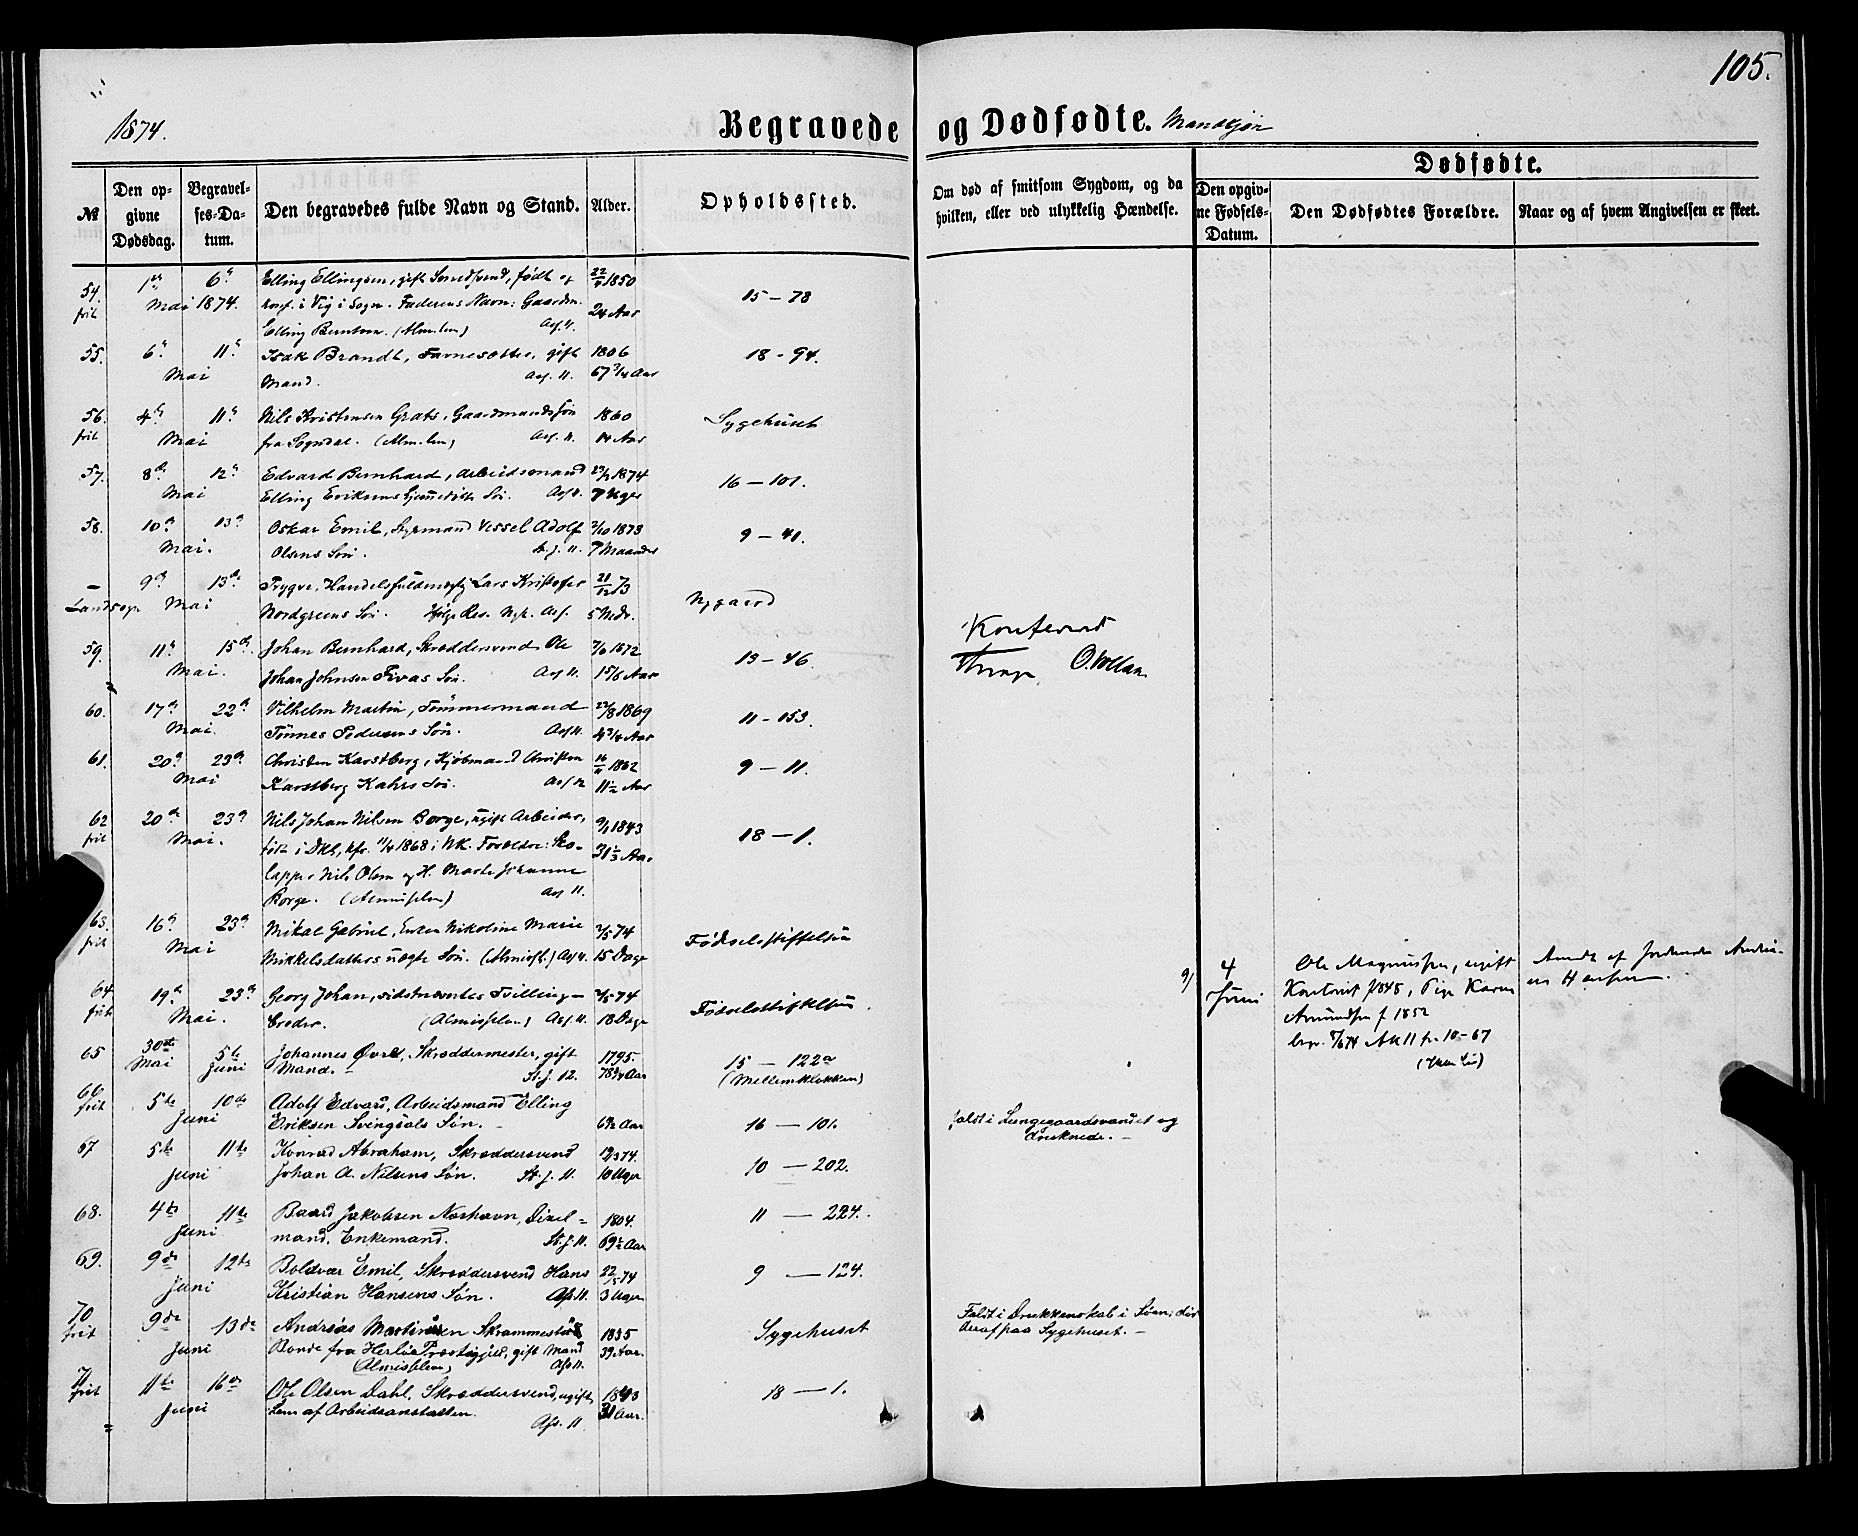 105.
1874.
Begravede og Dødfødte. Mandkjøn
Dødfødte.
№
Den opgivne Dødsdag.
Begravelses-Datum.
Den begravedes fulde Navn og Stand.
Alder.
Opholdssted.
Om død af smitsom Sygdom, og da hvilken, eller ved ulykkelig Hændelse.
Den opgivne Fødsels-Datum.
Den Dødfødtes Forældre.
Naar og af hvem Angivelsen er skeet.
54. 1 6 Elling Ellingsen, gift Smedsvend, født og 22/ 1850
frit Mai 1874. konf. i Vig i Sogn. Faderens Navn: Gaardm. 24 Aar 15 – 78
Elling Berntsen. (Alm.lem) Asf. 11.
55. 6 11 Isak Brandt, gift 1806 18 - 94.
Mai Mand. Asf. 11. 67 3/4 Aar
56. 4 11 Nils Kristensen Grats, Gaardmandssøn 1860 Sygehuset
frit Mai fra Sogndal. (Alm.lem) Asf. 11. 14 Aar
57. 8 12 Edvard Bernhard, Arbeidsmand 1874 16 – 101.
Mai Elling Eriksens Søn. Asf 11. 7 Uger
58. 10 13 Oskar Emil, Styrmand Vessel Adolf 1873 9 – 41.
Mai. Olsens Søn. St. J. 11. 7 Maaneder
– 9 13 Trygve, Handelsfuldmægtig Lars Kristofer 21/12 73 Nygaard
Landsogn Mai Nordgreens Søn. 5 Mdr.
59. 11 15 Johan Bernhard, Skræddersvend Ole 1872 13 – 46.
Mai. Johan Johnsen Søn. Asf 11. 1 5/6 Aar
Konfereret
O. Vollan
60. 17 22 Vilhelm Martin, Tømmermand 1869 11 - 153.
Mai. Tønnes Pedersens Søn. Asf 11. 4 3/4 Aar
61. 20 23 Christen Karstberg, Kjøbmand Christen 1862 9 – 11.
Mai Karstberg Kahrs Søn. Asf 12 11 1/2 Aar
62 20 23 Nils Johan Nilsen Borge, ugift Arbeider, 1843
frit Mai. født i DK, kfr. 1868 i NK. Forældre: Sko- 31 1/3 Aar 18 – 1.
lapper Nils Olsen og H. Marte Johanne
Borge. (Almisselem) Asf 11.
63. 16 23 Mikal Gabriel, Enken Nikoline Marie 2/5 74 Fødselsstiftelsen
frit Mai Mikkelsdatters uægte Søn. (Almissel.) Asf 11. 15 Dage
64. 19 23 Georg Johan, sidstnævntes Tvilling- 2/5 74 Fødselsstiftelsen.
frit Mai. broder. (Almisselem) Asf. 11. 18 Dage
9) 4 Juni
Ole Magnussen, ugift
f 1848, Pige Karen
Amundsen f 1852
Anmeldt af Jordmoder
Hansen.
65 30te 5te Johannes Øvre, Skræddermester, gift 1795. 15 – 122a
Mai Juni Mand. St. J. 12. 78 3/4 Aar (Mellemkløkken)
66 5te 10de Adolf Edvard, Arbeidsmand Elling
frit Juni Eriksen Svingdals Søn. 6 1/2 Aar 16 – 101.
faldt i Lungegaardsvandet og
druknede. –
67 5te 11te Konrad Abraham, Skræddersvend 74. 10 – 202.
Juni Johan A. Nilsens Søn. St. J. 11. 10 Uger
68. 4de 11te Baard Jakobsen Norhavn, Lixel- 1804. 11 – 224.
Juni mand. Enkemand. St. J. 11. 69 1/2 Aar
69. 9de 12te Boldvær Emil, Skræddersvend Hans 22/5 74 9 – 124.
Juni Kristian Hansens Søn. Asf. 11. 3 Uger
70 9de 13de Andreas Martinsen Skrammestø 1835 Sygehuset
frit Juni Bonde fra Herlø Præstegjeld, gift Mand 39 Aar.
(Almisselem) Asf 11.
Faldt i Drukkenskab i Søen; døde
deraf paa Sygehuset. –
71 11te 16de Ole Olsen Dahl, Skræddersvend, ugift, 1843 18 – 1.
frit Juni Lem af Arbeidsanstalten. Asf. 11 31 Aar.